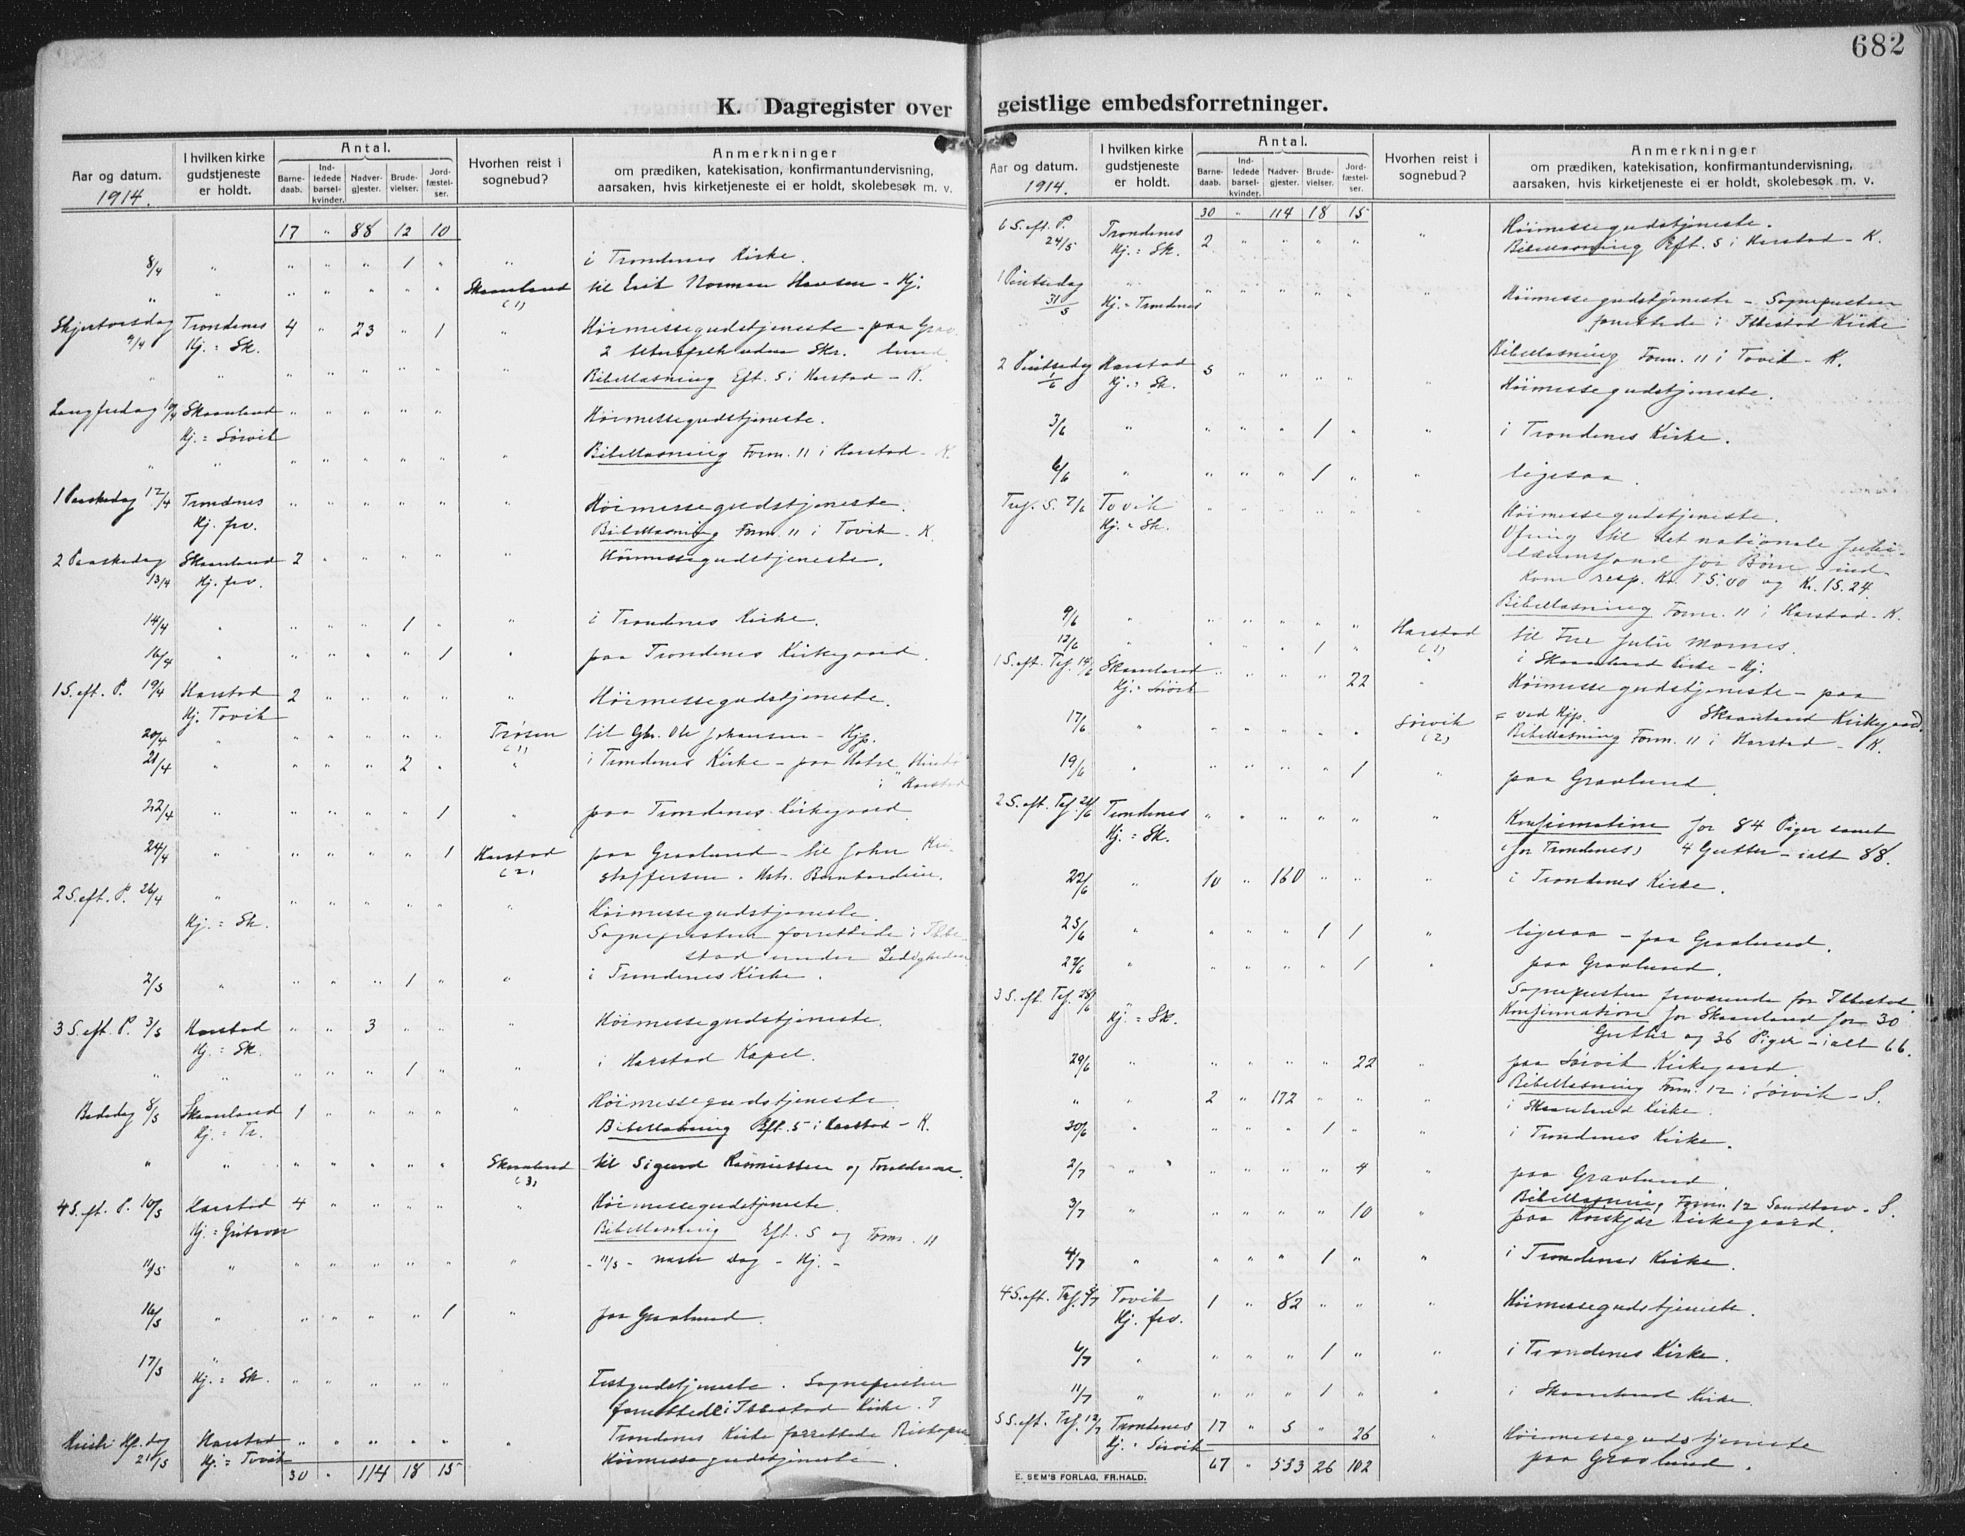 682
K. Dagregister over geistlige embedsforretninger.
Aar og datum.
1914.
I hvilken kirke gudstjeneste er holdt.
Antal.
Barnedaab.
Indledede barselkvinder.
Nadvergjester.
Brudevielser.
Jordfæstelser.
Hvorhen reist i sognebud?
Anmerkninger
om prædiken, katekisation, konfirmantundervisning,
aarsaken, hvis kirketjeneste ei er holdt, skolebesøk m. v.
17 " 88 12 10
8/4 " " " " 1 " " i Trondenes Kirke.
" " " " " " " Skaanland til Erik Norman Hansen - Kj.
(1)
Skjertorsdag Trondenes 4 " 23 " 1 " Höimessegudstjeneste - paa Grav-
9/4 Kj. = Sk. lund
" " " " " " Bibellæsning Eft. 5 i Harstad - K.
Langfredag 10/4 Skaanland " " " " " Höimessegudstjeneste.
Kj. = Sörvik
" " " " " " " " Bibellæsning Form. 11 i Harstad - K.
1 Paaskedag 12/4 Trondenes " " " " " " Höimessegudstjeneste.
Kj. frv. Bibellæsning Form. 11 i Tovik - K.
2 Paaskedag Skaanland 2 " " " " " Höimessegudstjeneste.
13/4 Kj. frv.
14/4 " " " " 1 " " i Trondenes Kirke.
16/4 " " " " " 1 " paa Trondenes Kirkegaard.
1 S. eft. P. 19/4 Harstad 2 " " " " " Höimessegudstjeneste.
Kj. Tovik
20/4 " " " " " " Trøsen til Gbr. Ole Johansen - Kjp.
(1)
21/4 " " " " 2 " " i Trondenes Kirke - paa Hotel
i Harstad
22/4 " " " " " 1 " paa Trondenes Kirkegaard
24/4 " " " " " 1 Harstad paa Gravlund - til John Kri-
(2) stoffersen.
2 S. eft. P. 26/4 " " " " " " " Höimessegudstjeneste.
Kj. = Sk. Sognepresten forrettede i Ibbe-
stad under Ledigheden
2/5 " " " " 1 " " i Trondenes Kirke.
3 S. eft. P. 3/5 Harstad " " 3 " " " Höimessegudstjeneste.
Kj. = Sk.
" " " " " 1 " " i Harstad Kapel.
Bededag 8/5 Skaanland 1 " " " " " Höimessegudstjeneste.
Kj. = Tr. Bibellæsning Eft. 5 i Harstad - K.
" " " " " " " Skaanland til Sigurd Rasmussen og
(3)
4 S. eft. P. 10/5 Harstad 4 " " " " " Höimessegudstjeneste.
Kj. = Bibellæsning Eft. 5 og Form. 11
11/5 " " " " " " " - 11/5 - næste Dag - Kj. -
16/5 " " " " " 1 " paa Gravlund.
17/5 " " " " " " " Festgudstjeneste. Sognepresten
Kj. = Sk. forrettede i Ibbestad Kirke. I
Trondenes Kirke forrettede Biskopen
Kristi Hf. dag Harstad " " " " " " Höimessegudstjeneste.
21/5 Kj. = Tovik
30 " 114 18 15
Aar og datum.
1914.
I hvilken kirke gudstjeneste er holdt.
Antal.
Barnedaab.
Indledede barselkvinder.
Nadvergjester.
Brudevielser.
Jordfæstelser.
Hvorhen reist i sognebud?
Anmerkninger
om prædiken, katekisation, konfirmantundervisning,
aarsaken, hvis kirketjeneste ei er holdt, skolebesøk m. v.
30 " 114 18 15
6 S. eft. P. Trondenes 2 " " " " " Höimessegudstjeneste.
24/5 Kj. = Sk. Bibellæsning Eft. 5 i Harstad - K.
1 Pintsedag " " " " " " " Höimessegudstjeneste - Sognepresten
31/5 Kj. = Trondenes forrettede i Ibbestad Kirke
Bibellæsning Form. 11 i Tovik - K.
2 Pintsedag Harstad 5 " " " " " Höimessegudstjeneste.
1/6 Kj. = Sk.
3/6 " " " " 1 " " i Trondenes Kirke.
6/6 " " " " 1 " " ligesaa.
Tref. S. 7/6 Tovik " " " " " " Höimessegudstjeneste.
Kj. = Sk. Ofring til det nationale Jubi-
læumsfond for Børn ind-
kom resp. Kr. 75.00 og Kr. 15.24.
Bibellæsning Form. 11 i Harstad - K.
9/6 " " " " " " Harstad til Fru Julie Mornes.
(1)
12/6 " " " " 1 " " i Skaanland Kirke - Kj.
1 S. eft. Tref. 14/6 Skaanland " " " " 22 " Höimessegudstjeneste - paa
Kj. = Sörvik Skaanland Kirkegaard.
17/6 " " " " " " Sörvik = ved Kjp.
(2) Bibellæsning Form. 11 i Harstad - K.
19/6 " " " " " 1 " paa Gravlund.
2 S. eft. Tref. 21/6 Trondenes " " " " " " Konfirmation for 84 Piger samt
Kj. = Sk. (for Trondenes) 4 Gutter - ialt 88.
22/6 " 10 " 160 " " " i Trondenes Kirke.
25/6 " " " " 1 1 " ligesaa - paa Gravlund.
27/6 " " " " " 1 " paa Gravlund.
3 S. eft. Tref. 28/6 " Sognepresten fraværende for Ibbestad.
Kj. = Sk. Konfirmation for Skaanland for 30
Gutter og 36 Piger - ialt 66.
29/6 " " " " " 22 " paa Sörvik Kirkegaard.
Bibellæsning Form. 12 i Sörvik - S.
" " 2 " 172 " " " i Skaanland Kirke.
30/6 " " " " 1 " " i Trondenes Kirke.
2/7 " " " " " 4 " paa Gravlund.
3/7 " " " " " 10 " Bibellæsning Form. 12 Sandtorv - S.
paa Kirkegaard.
4/7 " " " " 1 " " i Trondenes Kirke.
4 S. eft. Tref. 5/7 Tovik 1 " 82 " " " Höimessegudstjeneste.
Kj. frv.
6/7 " " " " 1 " " i Trondenes Kirke.
11/7 " " " " 1 " " i Skaanland Kirke.
5 S. eft. Tref. 12/7 Trondenes 17 " 5 " 26 Höimessegudstjeneste
Kj. = Sörvik paa Gravlund.
67 " 533 26 102
E. SEM'S FORLAG, FR.HALD.